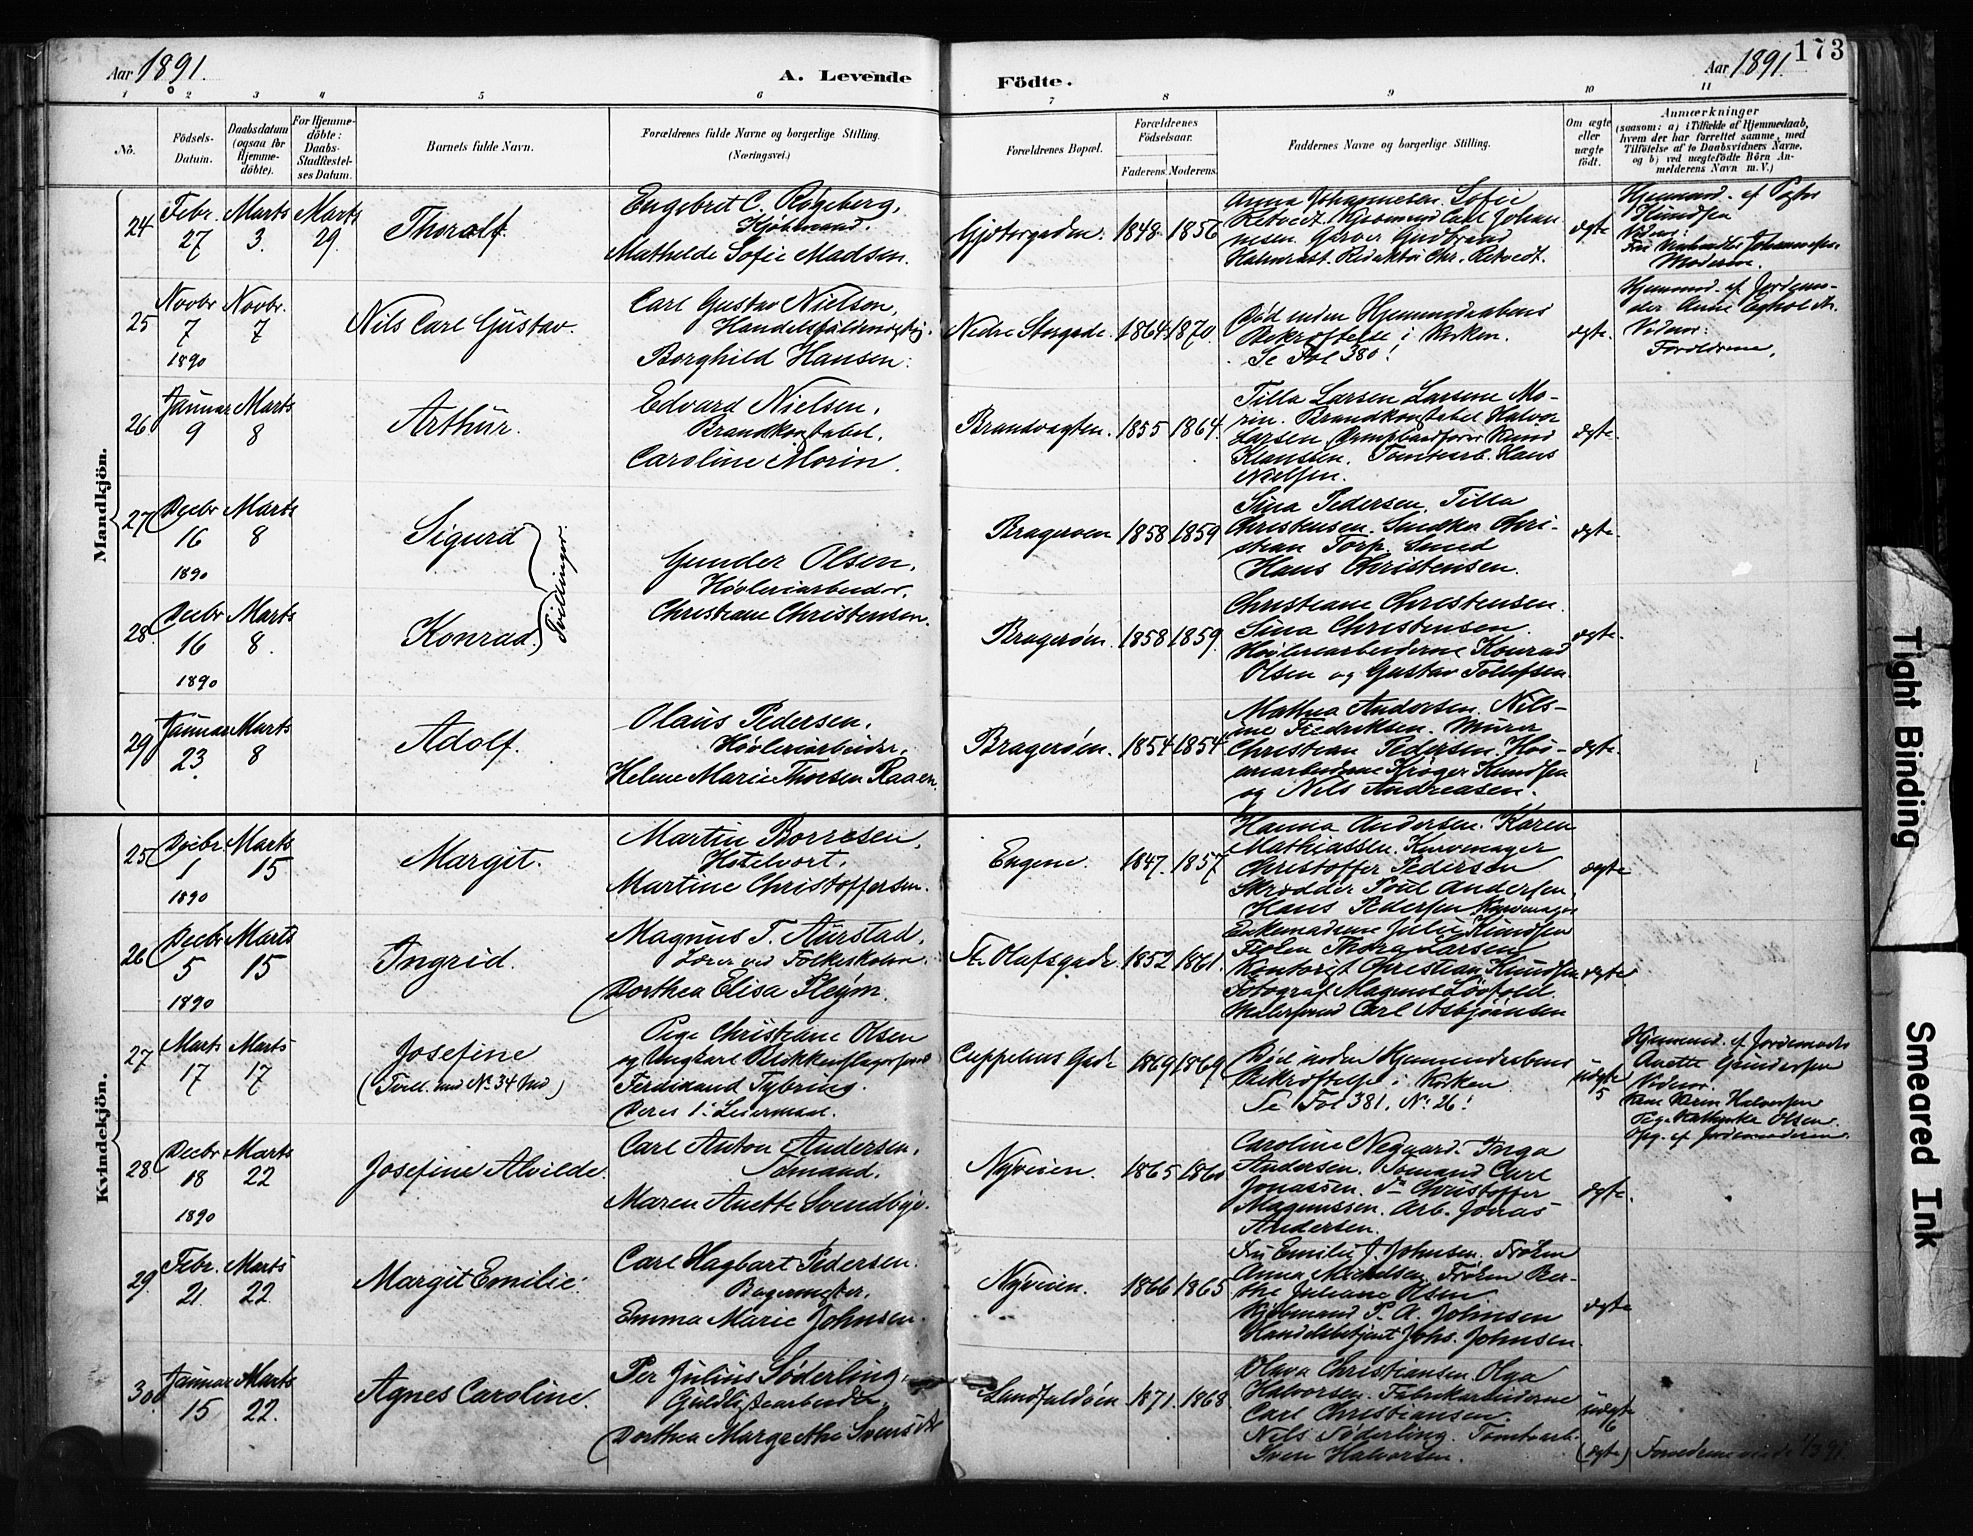 Aar 1891.
A. Levende
Födte.
Aar 1891.
173
1 2 3 4 5 6 7 8 9 10 11
No.
Födsels-Datum.
Daabsdatum (ogsaa for Hjemme-döbte).
For Hjemme-döbte: Daabs-Stadfæstel-ses Datum.
Barnets fulde Navn.
Forældrenes fulde Navne og borgerlige Stilling.
(Næringsvei.)
Forældrenes Bopæl.
Forældrenes Födselsaar.
Faderens. Moderens.
Faddernes Navne og borgerlige Stilling.
Om ægte eller uægte födt.
Anmærkninger
(saasom: a) i Tilfælde af Hjemmedaab,
hvem der har forrettet samme, med
Tilföielse af to Daabsvidners Navne,
og b) ved uægtefödte Börn An-
melderens Navn m. V.)
Mandkjön.
24 Febr. 27 Marts 3. Marts 29.
Thoralf.
Engebret C. Røgeberg,
Kjøbmand.
Mathilde Sofie Madsen.
1848 1856
Anna Johannesen. Sofie
Retvedt. Kjøbmand Carl Johan-
nesen. Garver Gudbrand
Redaktør Chr. Retvedt.
ægte
Hjemmed. af
Vidner:
Moderen.
25 Novbr. 7 1890 Novbr. 7
Nils Carl Gustav.
Carl Gustav Nielsen,
Borghild Hansen.
Nedre Storgade. 1864 1870.
Død uden Hjemmedaabens
Bekræftelse i Kirken.
Se Fol 380!
ægte.
Hjemmed. af Jordemo-
der
Vidner:
Forældrene.
26 Januar 9 Marts 8
Arthur.
Edvard Nielsen,
Brandkonstabel.
Caroline Morin.
Brandvagten. 1855 1864.
Tilla Larsen Larsine Mo-
rin. Brandkonstabel Halvor
Larsen. Knud
Klausen. Tomtearb. Hans
Nielsen.
ægte.
27 Decbr 16 1890 Marts 8
Sigurd
Tvillinger.
Gunder Olsen,
Høvleriarbeider,
Christiane Christensen.
Bragerøen 1858 1859
Sina Pedersen, Tilla
Christensen. Snedker Chri-
stian Torp. Smed
Hans Christensen.
ægte.
28 Decbr 16 1890 Marts 8.
Konrad.
Bragerøen. 1858 1859.
Christiane Christensen.
Sina Christensen.
Høvleriarbeiderne Konrad
Olsen og Gustav Tollefsen
ægte.
29 Januar 23. Marts 8
Adolf.
Olaus Pedersen.
Høvleriarbeider,
Helene Marie Thorsen Raaen.
Bragerøen. 1854 1854
Mathea Andersen. Nils-
ine Fredriksen. Murer
Christian Pedersen. Høv-
Knudsen
og Nils Andreasen.
ægte.
Kvindekjön.
25 Decbr. 1 1890 Marts 15
Margit.
Martin Borresen,
Hotelvert.
Martine Christoffersen.
Engene. 1847. 1857
Hanna Andersen. Karen
Mathiassen. Kurvemager
Christoffer Pedersen
Skrædder Poul Andersen.
Hans Pedersen Kurvemager
ægte
26 Decbr 5 1890 Marts 15
Ingrid.
Magnus T. Aurstad,
Lærer ved Folkeskolen.
Dorthea Elisa Pleym.
St. Olafsgade. 1852 1861.
Enkemadame Julie Knudsen
Frøken Thora Larsen
Kontorist Christian Knudsen
Fotograf Magnus Løvfold.
Carl Asbjørnsen
ægte
27 Marts 17 Marts 17
Josefine
(Tvill. med No. 34 Md)
Pige Christiane Olsen
og Ungkarl
Ferdinand Tybring.
Deres 1. Leiermaal.
Cappelens Gade 1869 1869
Død uden Hjemmedaabens
Bekræftelse i Kirken
Se Fol 381. No. 26!
uægte 5
Hjemmed. af Jordemoder
Anette Gundersen
Vidner:
Halvorsen
Pige Olsen.
Opg. af Jordemoderen.
28 Decbr 18 1890 Marts 22
Josefine Alvilde.
Carl Anton Andersen,
Sømand.
Maren Anette Svendbye.
Nyveien. 1865 1860
Caroline Negaard. Inga
Andersen. Sømand Carl
Jonassen. Do Christoffer
Magnussen. Arb. Jonas
Andersen.
ægte.
29 Febr. 21. Marts 22.
Margit Emilie.
Carl Hagbart Pedersen.
Bagermester,
Emma Marie Johnsen.
Nyveien. 1866 1865
Fru Emilie J. Johnsen. Frøken
Anna Michelsen. Frøken Ber-
the Juliane Olsen
Kjøbmand P. A. Johnsen
Handelsbetjent Johs. Johnsen.
ægte
30 Januar 15 Marts 22.
Agnes Caroline.
Per Julius Søderling.
Guldlistearbeider
Dorthea Margrethe
Landfaldøen 1871. 1868.
Olava Christiansen. Olga
Halvorsen. Fabrikarbeiderne
Carl Christiansen.
Nils Søderling. Tomtearb.
Sven Halvorsen.
uægte 6
(ægte)
Tight Binding
Smeared Ink